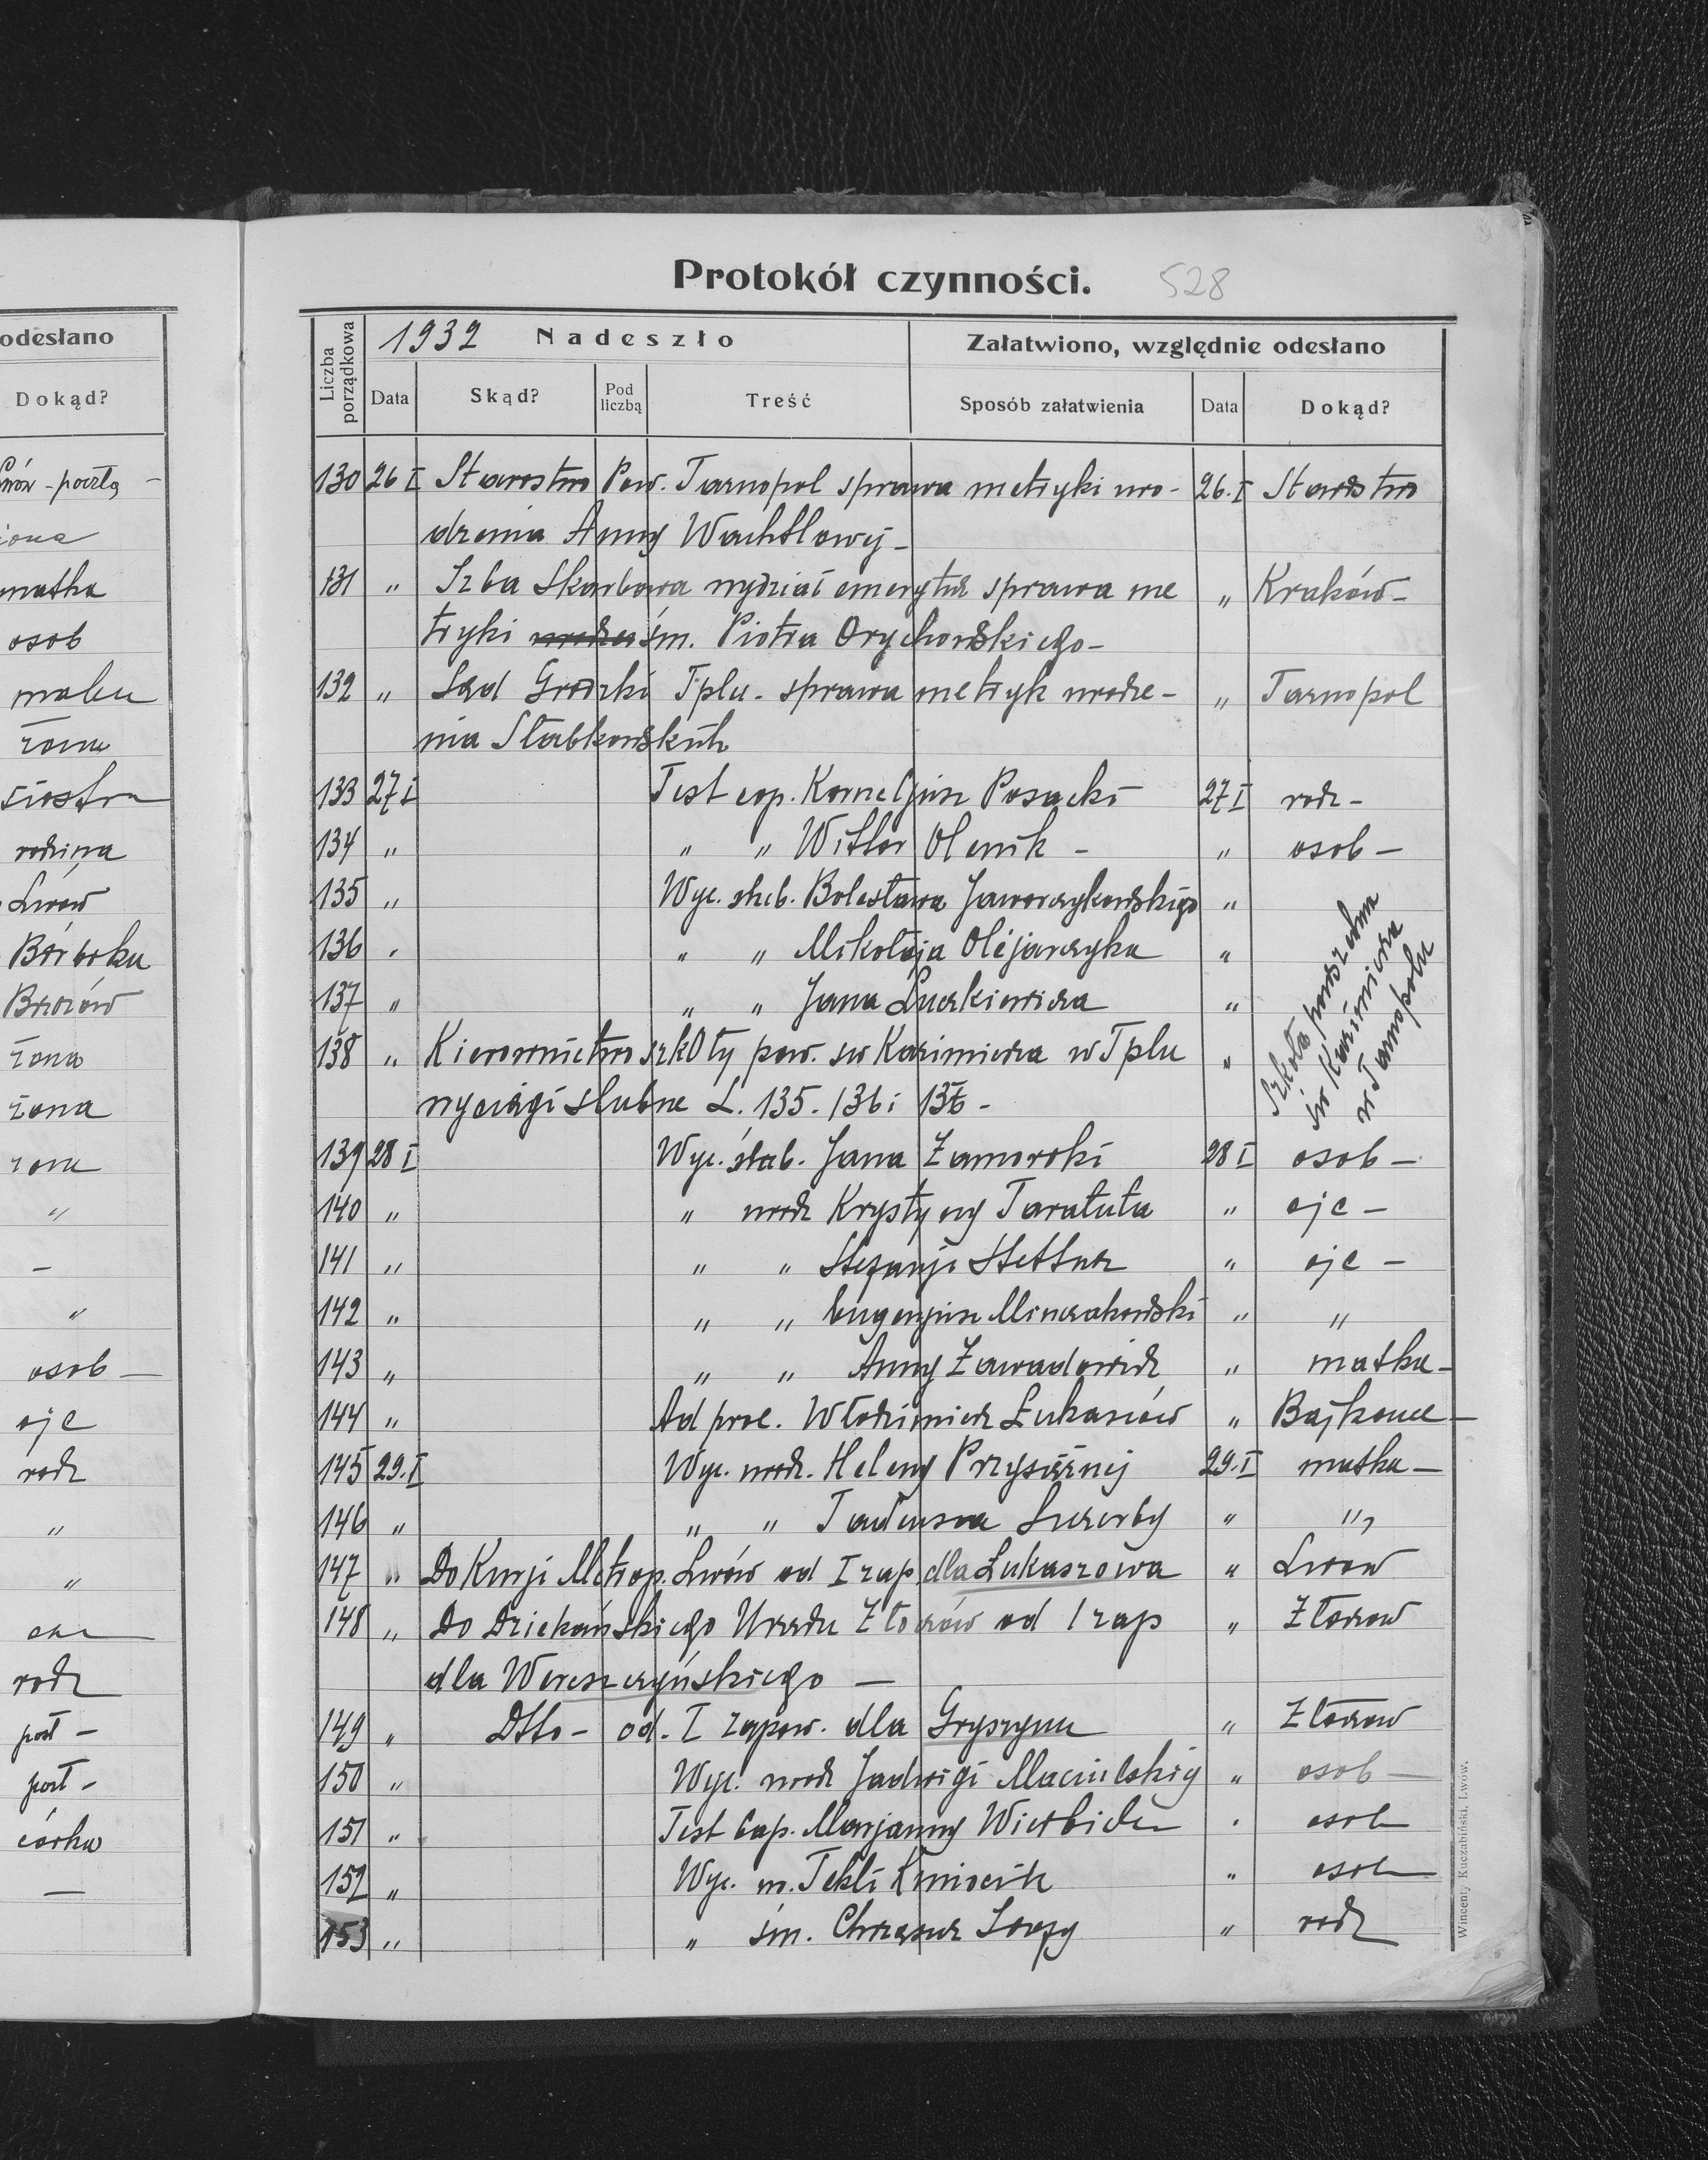 odesłano
Dokąd?
Lwów - pocztą -
żona
matka
osob
żona
siostra
rodzina
Lwów
żona
żona
żona
"
-
"
osob -
ojc
rodz
"
"
rodz
poczt -
poczt -
córka
-
Protokół czynności. 528
Liczba porządkowa
1932 Nadeszło
Załatwiono, względnie odesłano
Data Skąd? Pod liczbą Treść Sposób załatwienia Data Dokąd?
130 26 I Starostwo Pow. Tarnopol sprawa metryki uro- 26. I Starostwo
dzenia Anny Wachtlowej -
131 " Izba Skarbowa wydział emerytur sprawa me " Kraków -
tryki śm. Piotra Orychowskiego -
132 " Sąd Grodzki Tplu - sprawa metryk urodze- " Tarnopol
nia Słabkowskich
133 27 I Test cop. Korneljusz Posacki 27 I rodz -
134 " " " Witlor Olenik - " osob -
135 " Wyc. slub. Bolesława Jaworczykowskiego "
136 " " " Mikołaja Olejarczyka "
137 " " " Jana Luckiewicza "
Szkoła powszechna
św Kazimierza
w Tarnopolu
138 " Kierownictwo szkOły pow. sw Kazimierza w Tplu "
wyciągi slubne L. 135. 136 i 137 -
139 28 I Wyc. ślub. Jana Zamorski 28 I osob -
140 " " urodz Krystyny Taratuta " ojc -
141 " " " Stefanji " ojc -
142 " " " Eugenjusz Minczakowski " "
143 " " " Anny Zawadowicz " matka -
144 " Ad proc. Włodzimierz Łukasiów " Bajkowce -
145 29. I Wyc. urodz. Heleny Przysiężnej 29. I matka -
146 " " " Tadeusza Szczerby " "
147 " Do Kurji Metrop. Lwów od I zap. dla Łukaszowa " Lwow
148 " Do Dziekańskiego Urzędu Złoczów od I zap " Złoczow
dla Wereszczyńskiego -
149 " Dtto - od. I zapow. dla Gryszyna " Złoczow
150 " Wyc. urodz Jadwigi " osob -
151 " Test Cap. Marjanny " osob
152 " Wyc. u. Tekli Kmiecik " osob
153 " " śm. Chrząszcz " rodz
Wincenty Kuczabiński, Lwów.